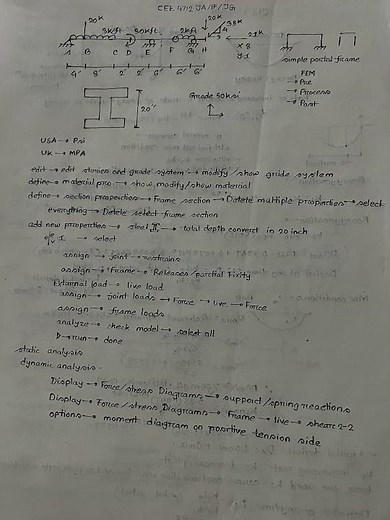 CEE 4712 JA/IF/JG
20K
20K
3K/ft 20K/ft 2K/ft
3.8K
3
4
A B C D E F G H
4' 8' 2' 6' 6' 6' 6'
simple portal frame
FEM
→ Pre
→ Process
→ Post
20"
Grade 50 Ksi
USA → Psi
UK → MPA
edit → edit stories and grade system → modify/show gride system
define → material prop → show modify/show material
define → section properties → Frame section → Delete multiple properties → select
everything → Delete select frame section
add new properties → steel I → total depth convert in 20 inch
I → select
assign → joint → restrains
assign → Frame → Releases/partial Fixity
External load → live load
assign → joint loads → Force → live → Force
assign → frame loads
analyze → check model → select all
→ run → done
static analysis
dynamic analysis
Display → Force/stress Diagrams → support/spring reactions
Display → Force/stress Diagrams → Frame → live → shear 2-2
options → moment diagram on positive tension side